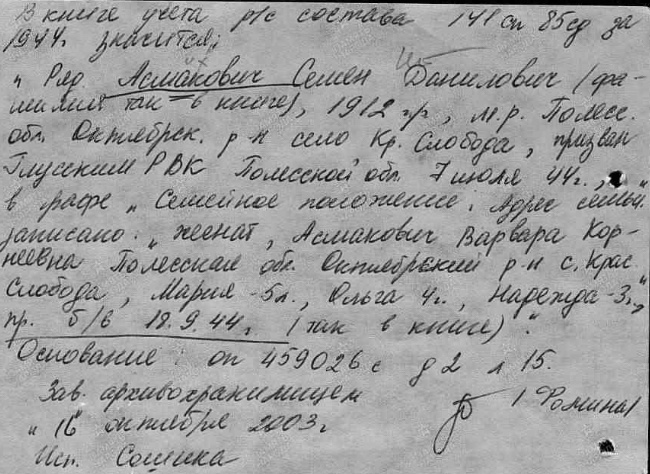 В книге учета р/с состава 141 сп 85 сд за
1944г. значится:
"Ряд. Асмакович Семен Данилович (фа-
милия так в книге), 1912 гр, м.р. Полесс.
обл. Октябрск. р-н село Кр. Слобода, призван
Глусским РВК Полесской обл. 7 июля 44г.,
в графе "Семейное положение. Адрес семьи"
записано: "женат, Асмакович Варвара Кор-
неевна Полесская обл. Октябрский р-н с. Крас.
Слобода, Мария - 5л., Ольга 4г., Надежда - 3г.,
пр. б/в 18.9.44г. (так в книге)".
Основание: оп 459026с д 2 л 15.
Зав. архивохранилищем
"16" октября 2003г /Фомина/
Исп.